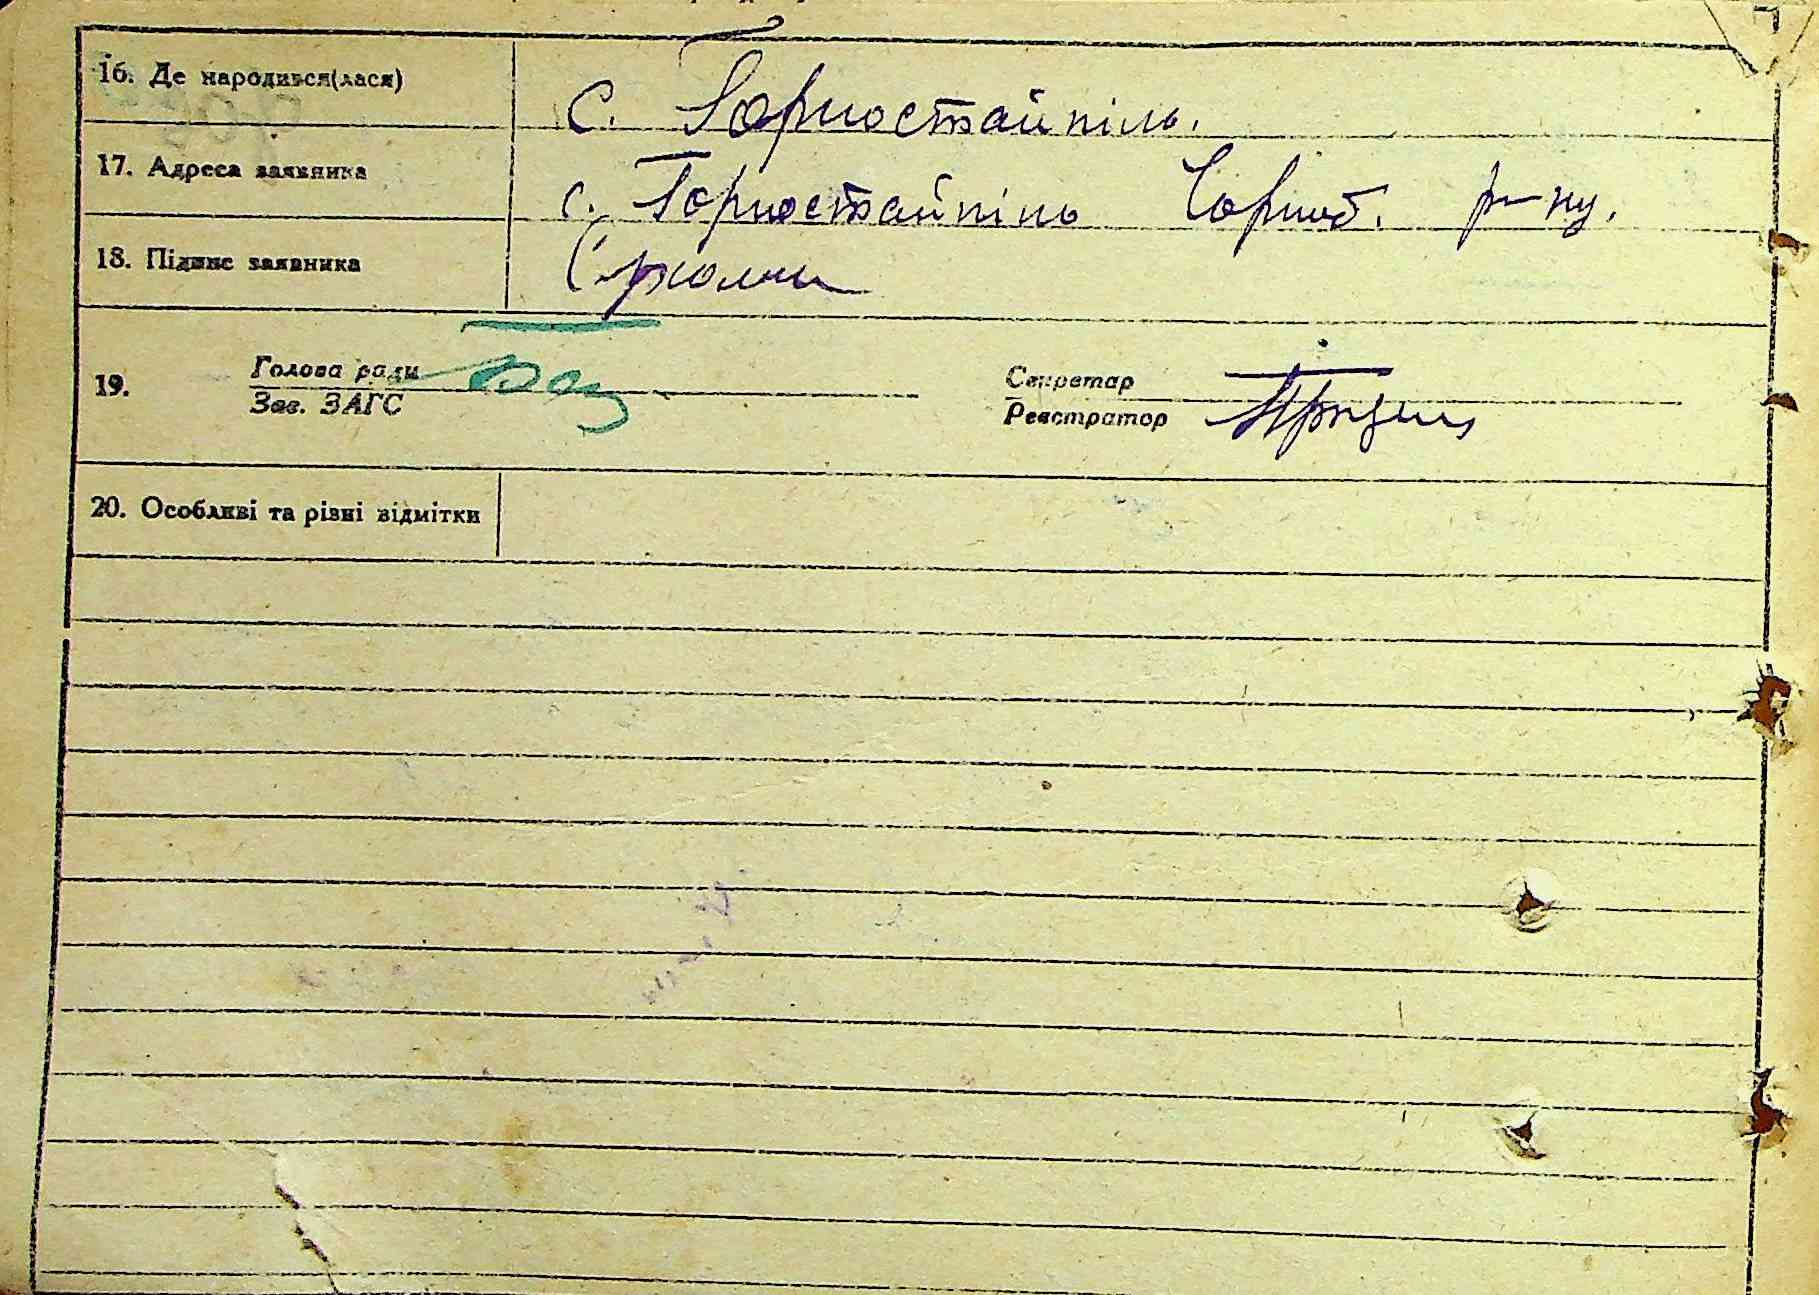 16. Де народився(лася) с. Горностайпіль.
17. Адреса заявника с. Горностайпіль Чорноб. р-ну.
18. Підпис заявника
19. Голова ради Секретар
Зав. ЗАГС Реєстратор
20. Особливі та різні відмітки